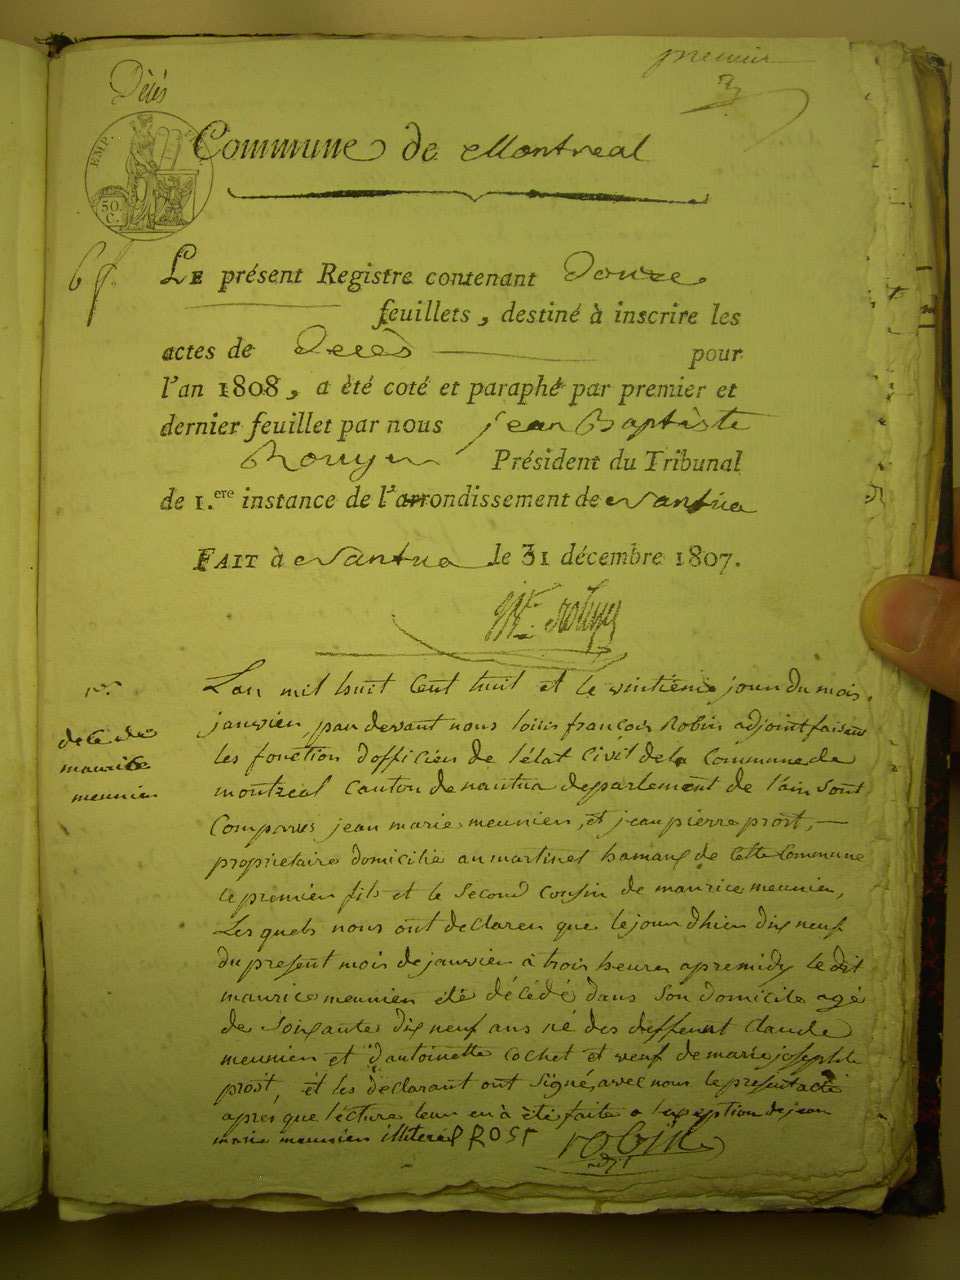 Décès
premier
EMP.
50.
C.
Commune de Montreal
LE présent Registre contenant Douze
feuillets, destiné à inscrire les
actes de Décès pour
l'an 1808, a été coté et paraphé par premier et
dernier feuillet par nous jean Baptiste
Rouyer Président du Tribunal
de 1.ere instance de l'arrondissement de Nantua
FAIT à Nantua le 31 décembre 1807.
1er.
décé de
maurice
meunier
L'an mil huit cent huit et le vintiéme jour du mois
janvier, par devant nous loüis françois Robin adjoint faisant
les fonction d'officier de l'état Civil de la Commune de
montreal Canton de nantua departement de l'ain sont
Comparus jean marie meunier, et jean pierre prost,
propriétaire domicilié au martinet hamaux de cette Commune
le premier fils et le Second Cousin de maurice meunier,
Les quels nous ont declarer que le jour d'hier dix neuf
du present mois de janvier à trois heures apremidy le dit
maurice meunier été décédé dans son domicile agé
de soixante dix neuf ans né des deffunt claude
meunier et d'antoinette cochet et veuf de marie josephte
prost, et les declarant ont signé, avec nous le present acte
apres que lécture leur en à été faite a l'exeption de jean
marie meunier illiteré PROST robin
adjt